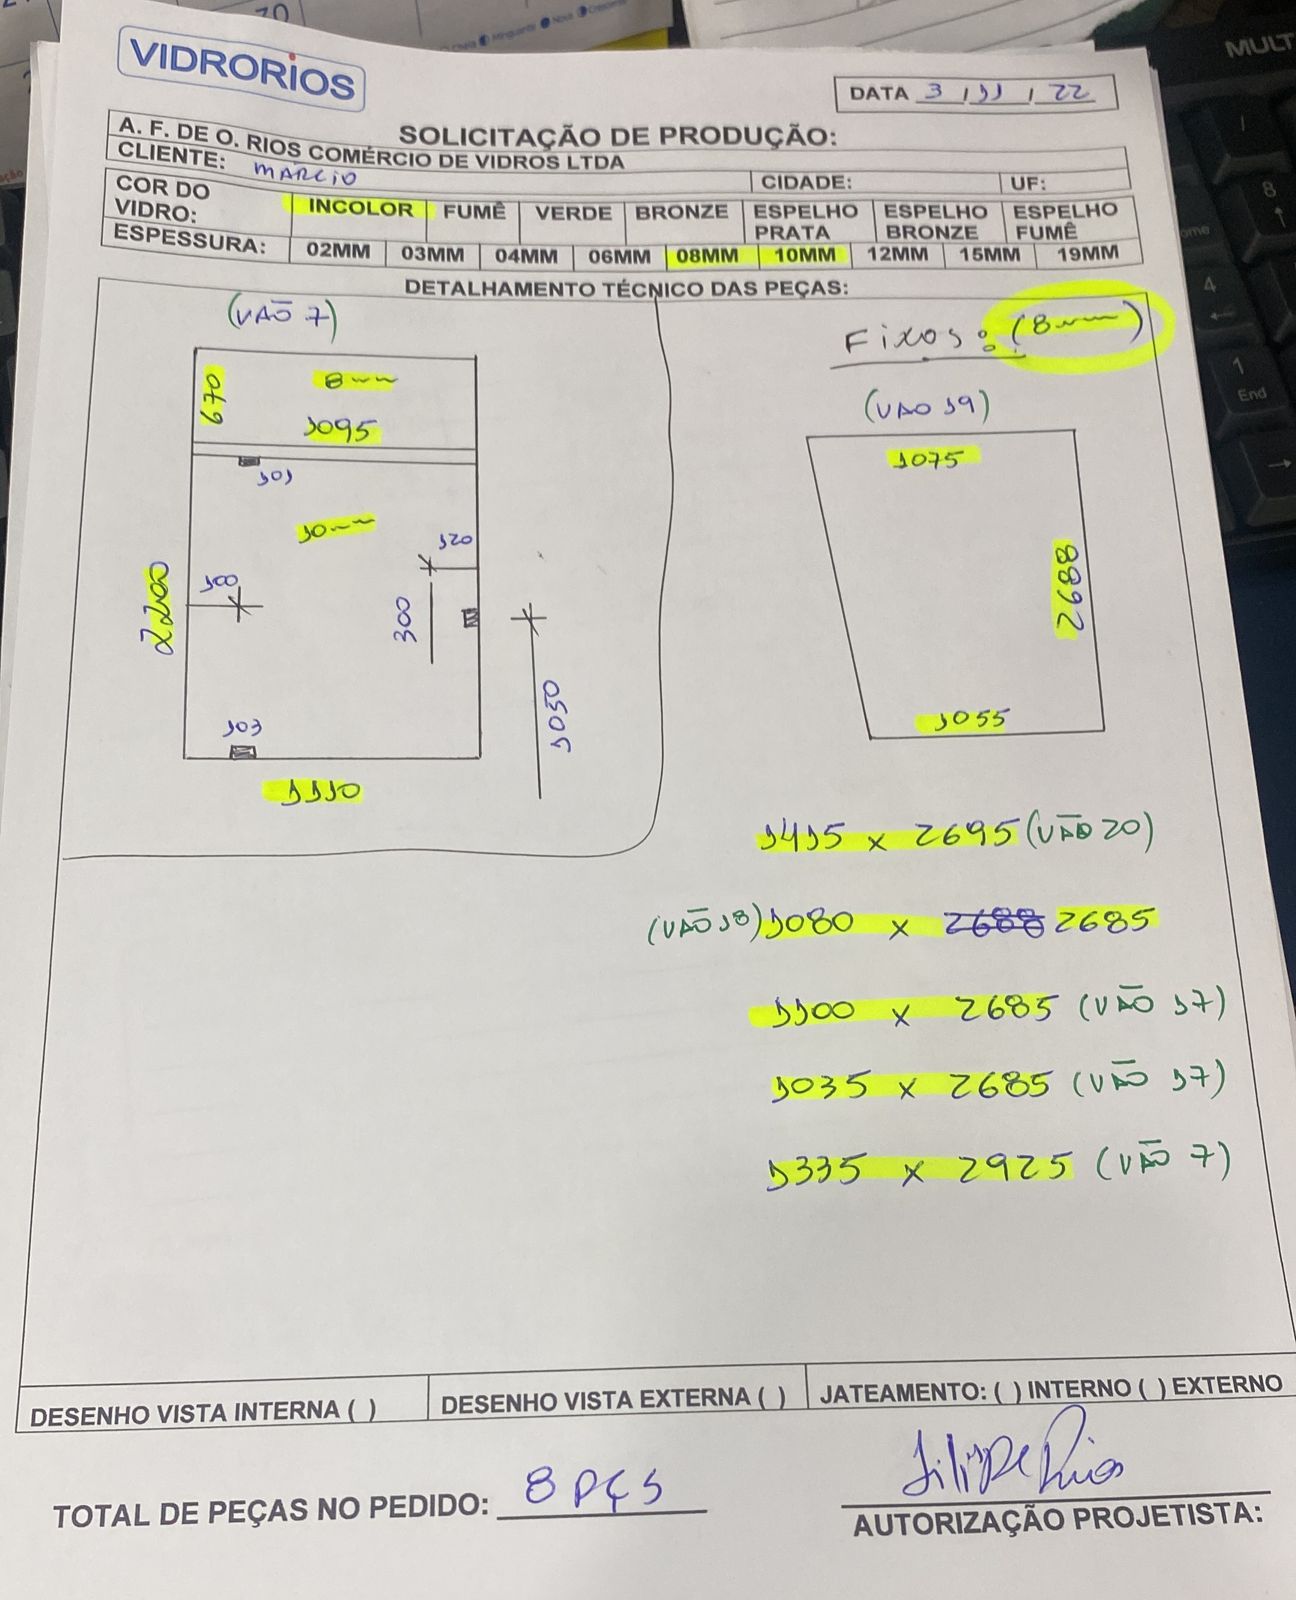 VIDRORIOS
DATA 3 / 11 / 22
SOLICITAÇÃO DE PRODUÇÃO:
A. F. DE O. RIOS COMÉRCIO DE VIDROS LTDA
CLIENTE: MARCIO
CIDADE: UF:
COR DO VIDRO: INCOLOR FUMÊ VERDE BRONZE ESPELHO PRATA ESPELHO BRONZE ESPELHO FUMÊ
ESPESSURA: 02MM 03MM 04MM 06MM 08MM 10MM 12MM 15MM 19MM
DETALHAMENTO TÉCNICO DAS PEÇAS:
(VÃO 7)
670
8mm
1095
101
10mm
120
100
300
2200
1050
103
1110
Fixos: (8mm)
(VAO 19)
1075
2688
1055
1415 x 2695 (VÃO 20)
(VÃO 18) 1080 x 2688 2685
1100 x 2685 (VÃO 17)
1035 x 2685 (VÃO 17)
1335 x 2925 (VÃO 7)
DESENHO VISTA INTERNA ( )
DESENHO VISTA EXTERNA ( )
JATEAMENTO: ( ) INTERNO ( ) EXTERNO
TOTAL DE PEÇAS NO PEDIDO: 8 PÇS
Filipe Rios
AUTORIZAÇÃO PROJETISTA:
MULT
8
4
1
End
70